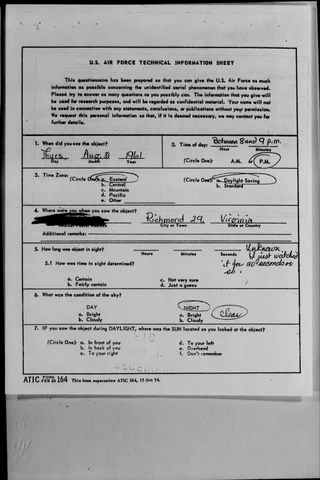 U.S. AIR FORCE TECHNICAL INFORMATION SHEET
This questionnaire has been prepared so that you can give the U.S. Air Force as much
information as possible concerning the unidentified aerial phenomenon that you have observed.
Please try to answer as many questions as you possibly can. The information that you give will
be used for research purposes, and will be regarded as confidential material. Your name will not
be used in connection with any statements, conclusions, or publications without your permission.
We request this personal information so that, if it is deemed necessary, we may contact you for
further details.
1. When did you see the object?
Thurs. Aug. 31 1961
Day Month Year
2. Time of day: Between 8 and 9 p.m.
Hour Minutes
(Circle One): A.M. or P.M.
3. Time Zone:
(Circle One): a. Eastern
b. Central
c. Mountain
d. Pacific
e. Other
(Circle One): a. Daylight Saving
b. Standard
4. Where were you when you saw the object?
Richmond 29, Virginia
City or Town State or Country
Additional remarks:
5. How long was object in sight?
Hours Minutes Seconds
Unknown
I just watched
it for 30 seconds or
so.
5.1 How was time in sight determined?
a. Certain c. Not very sure
b. Fairly certain d. Just a guess
6. What was the condition of the sky?
DAY NIGHT
a. Bright a. Bright
b. Cloudy b. Cloudy
Clear
7. IF you saw the object during DAYLIGHT, where was the SUN located as you looked at the object?
(Circle One): a. In front of you d. To your left
b. In back of you e. Overhead
c. To your right f. Don't remember
ATIC FORM FEB 60 164 This form supersedes ATIC 164, 13 Oct 54.